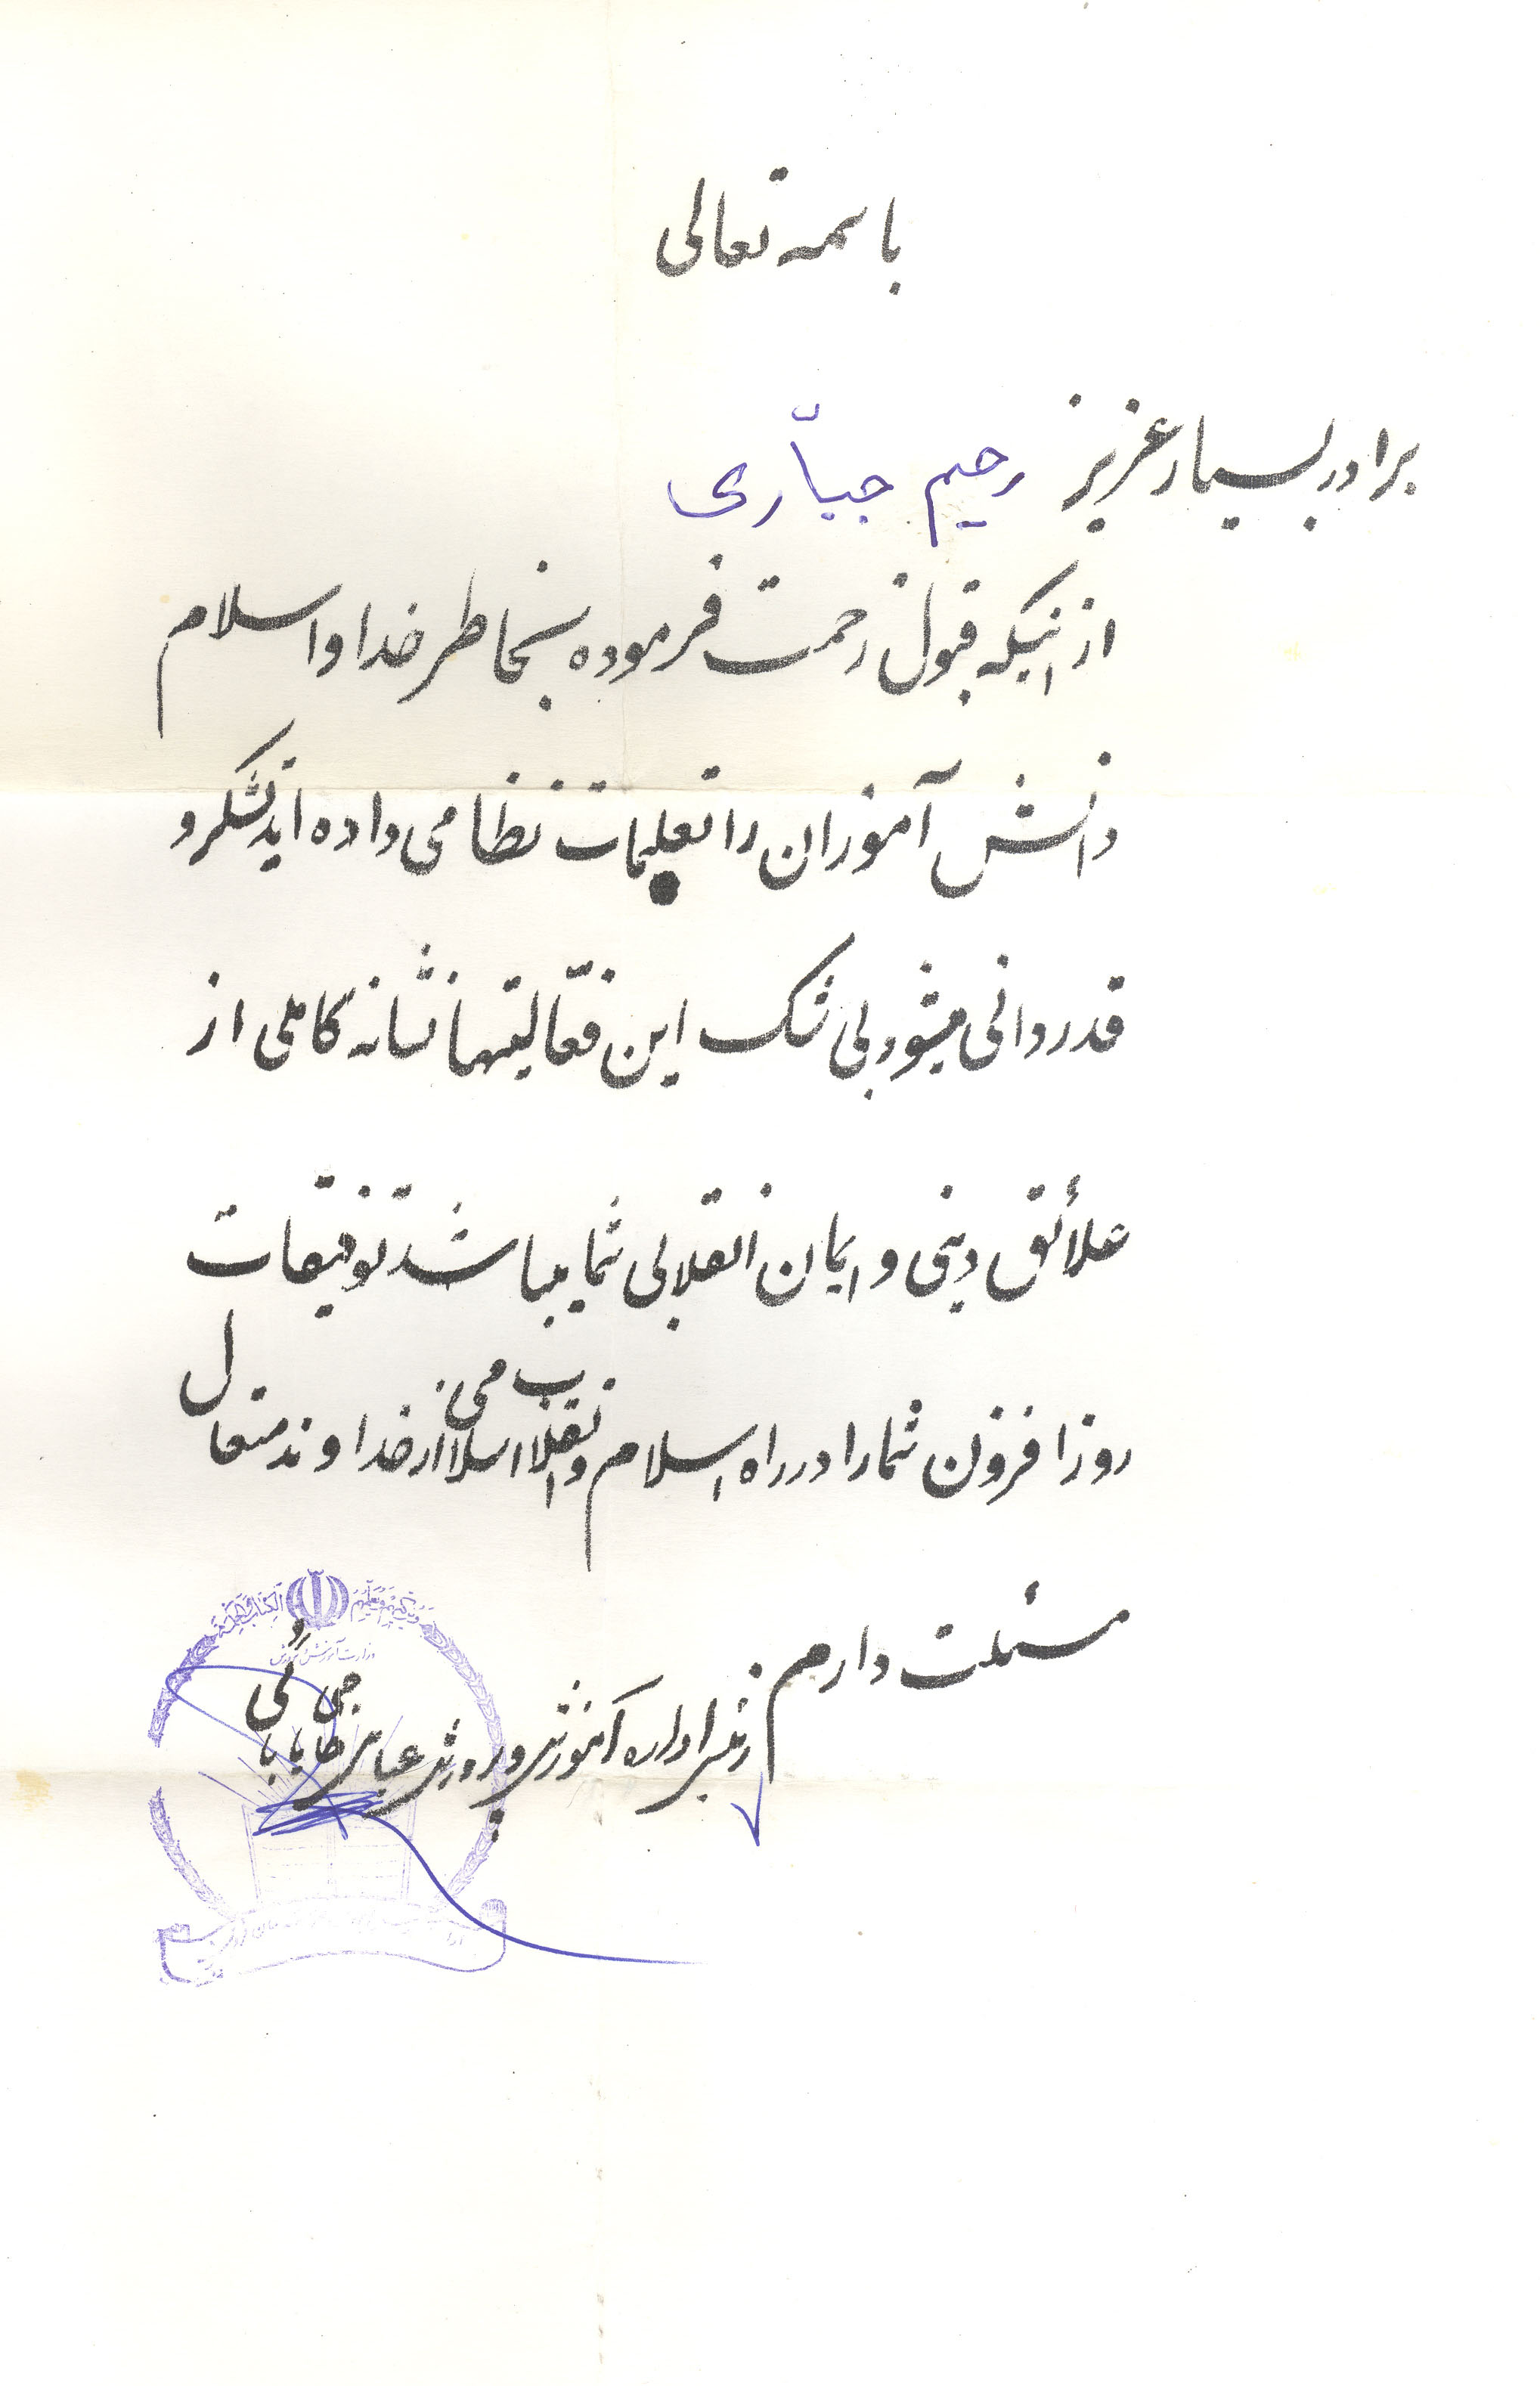 باسمه تعالی
برادر بسیار عزیز رحیم جبّاری
از اینکه قبول زحمت فرموده بخاطر خدا و اسلام
دانش آموزان را تعلیمات نظامی داده اید تشکر و
قدردانی میشود بی شک این فعّالیتها نشانه کاملی از
علائق دینی و ایمان انقلابی شما میباشد توفیقات
روز افزون شما را در راه اسلام و انقلاب اسلامی از خداوند متعال
مسئلت دارم
رئیس اداره آموزش و پرورش عباس حاجی بابائی
وزارت آموزش و پرورش